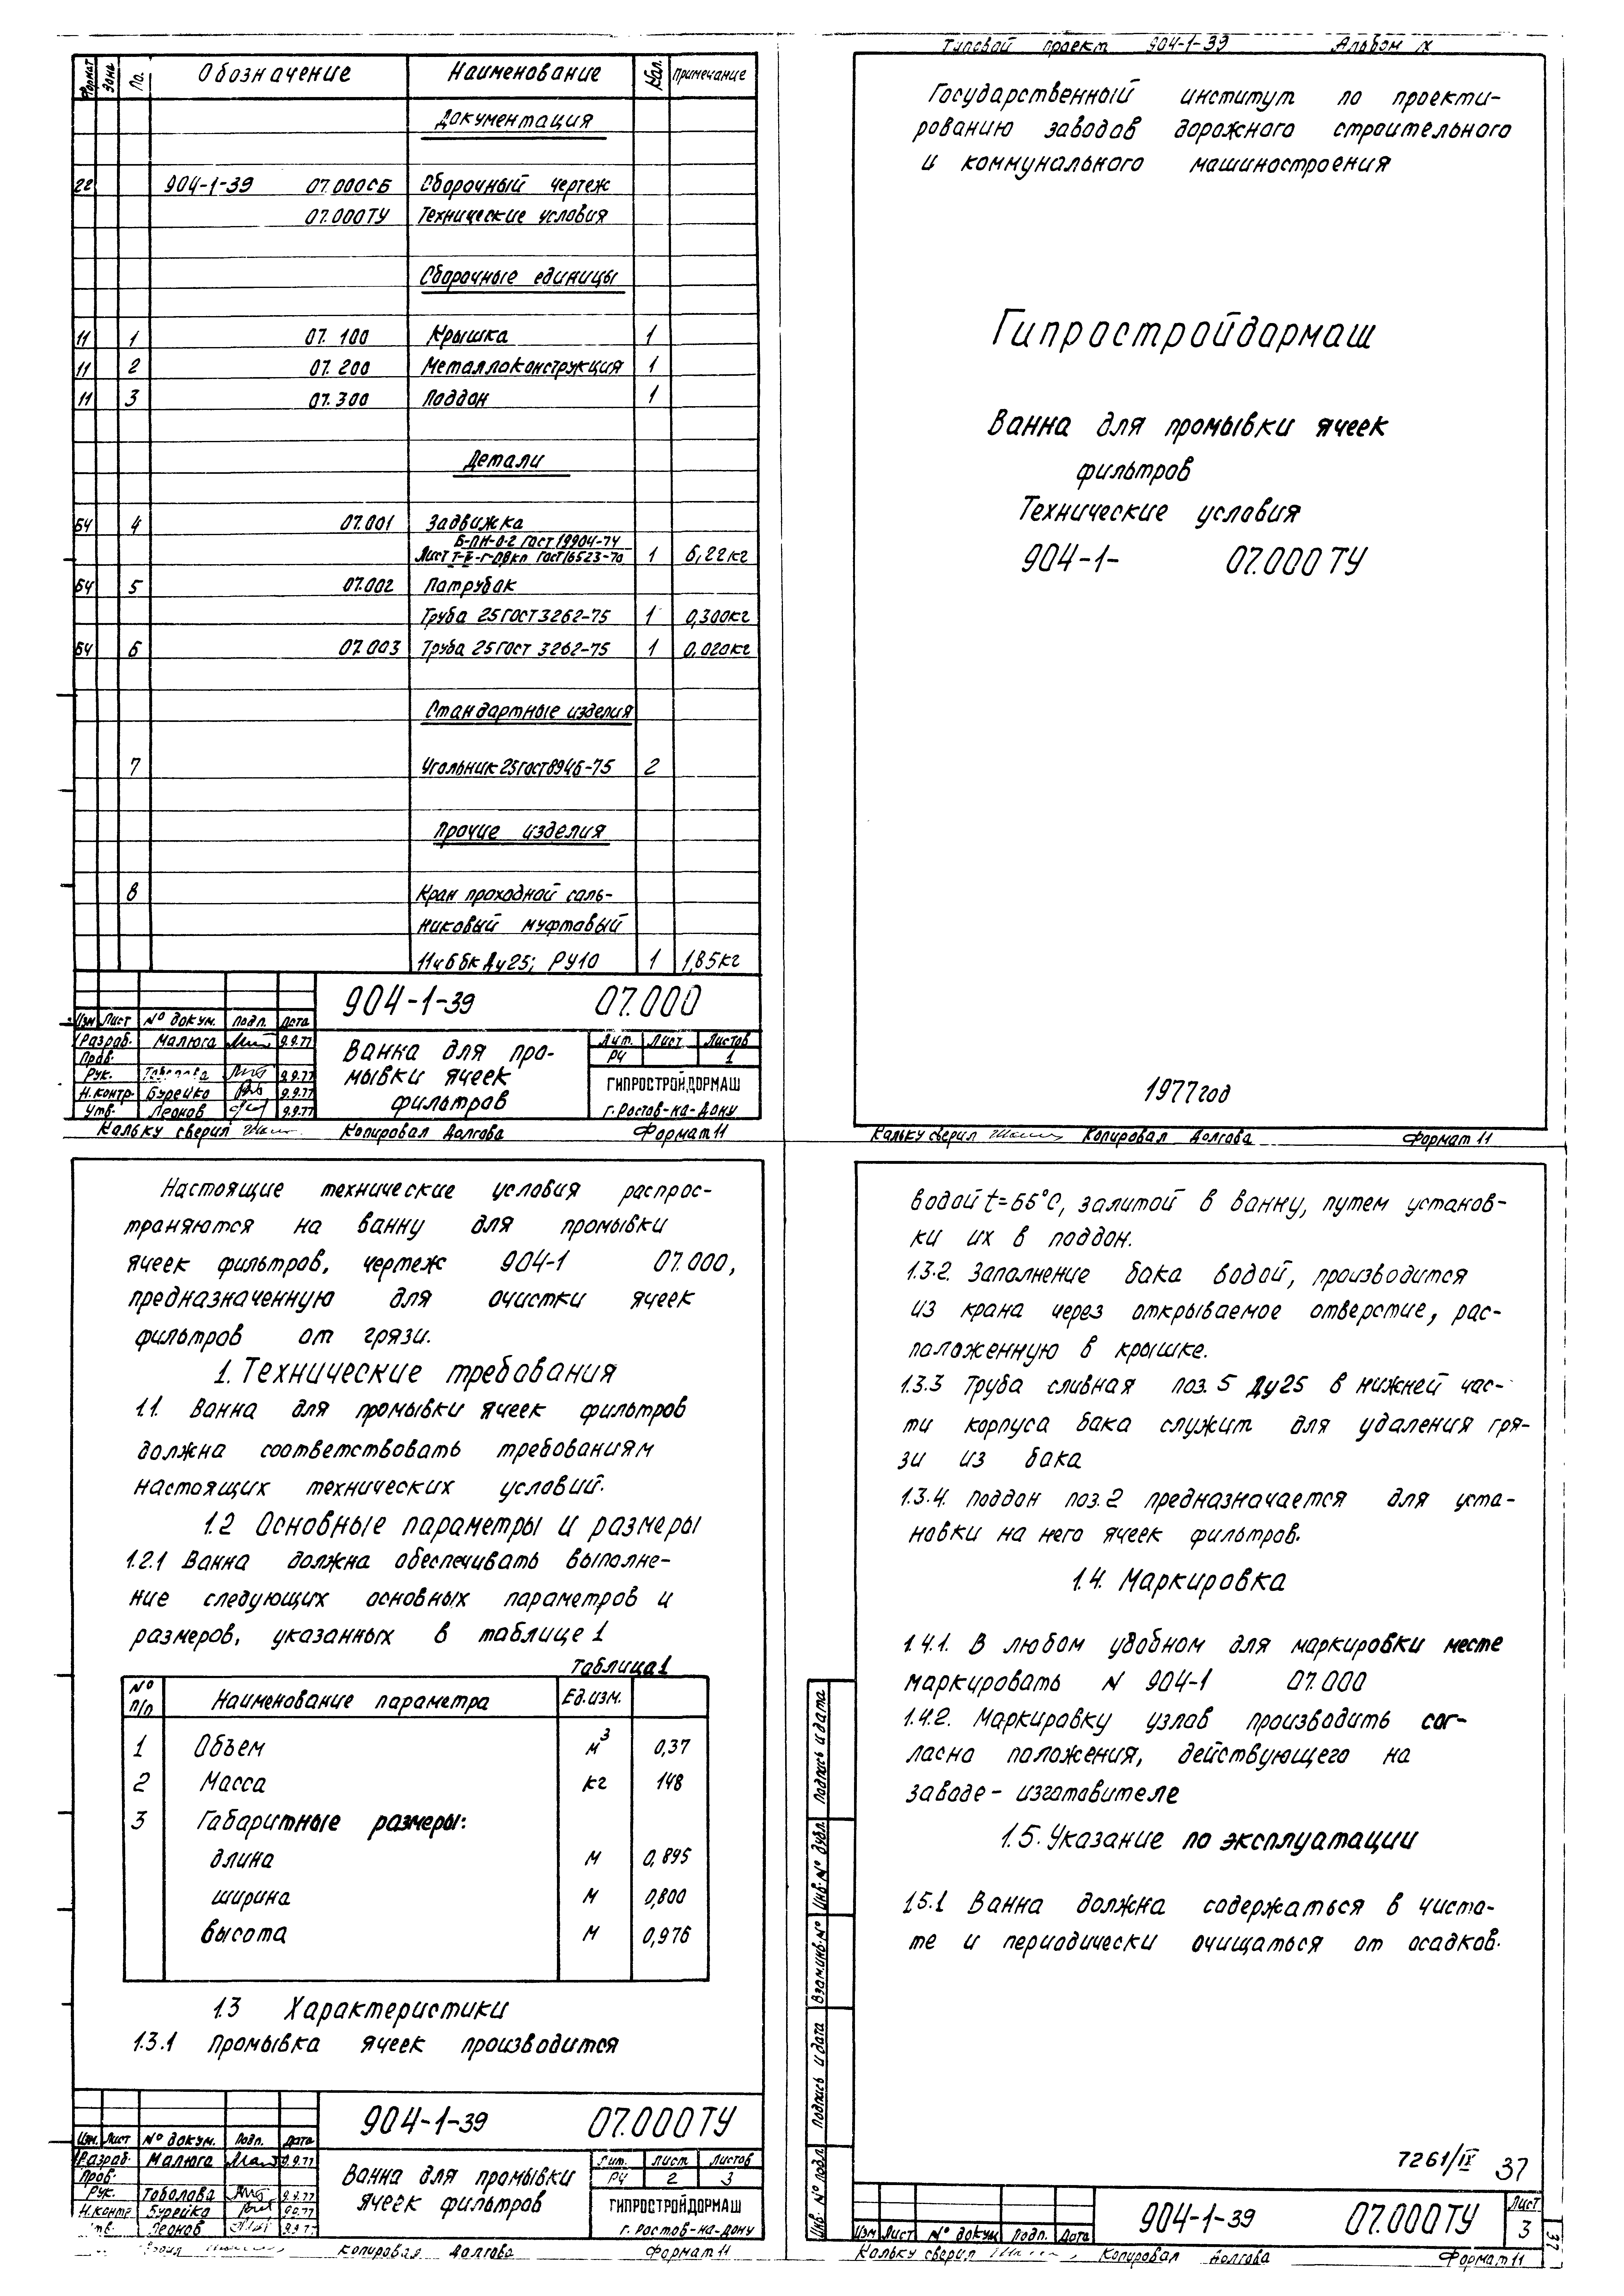 Формат Зона По. Обозначение Наименование Кол. Примечание
Документация
22 904-1-39 07.000СБ Сборочный чертеж
07.000ТУ Технические условия
Сборочные единицы
11 1 07. 100 Крышка 1
11 2 07. 200 Металлоконструкция 1
11 3 07.300 Поддон 1
Детали
БЧ 4 07.001 Задвижка
Б-ПН-0-2 ГОСТ 19904-74
Лист ГОСТ 16523-70 1 6,22кг
БЧ 5 07.002 Патрубок
Труба 25 ГОСТ 3262-75 1 0,300кг
БЧ 6 07.003 Труба 25 ГОСТ 3262-75 1 0,020кг
Стандартные изделия
7 Угольник 25 ГОСТ 8946-75 2
Прочие изделия
8 Кран проходной саль-
никовый муфтовый
11ч6бк Ду25; РУ10 1 1,85кг
904-1-39 07.000
Изм Лист № докум. Подп. Дата
Разраб. Малюга 9.9.77
Пров.
Рук. 9.9.77
Н.контр. Бурейко 9.9.77
Утв. Леонов 9.9.77
Ванна для про-
мывки ячеек
фильтров
Лит. Лист Листов
РЧ 1
ГИПРОСТРОЙДОРМАШ
г.Ростов-на-Дону
Кальку сверил Копировал Долгова Формат 11
Типовой проект 904-1-39 Альбом IX
Государственный институт по проекти-
рованию заводов дорожного строительного
и коммунального машиностроения
Гипростройдормаш
Ванна для промывки ячеек
фильтров
Технические условия
904-1- 07.000 ТУ
1977 год
Кальку сверил Копировал Долгова Формат 11
Настоящие технические условия распрос-
траняются на ванну для промывки
ячеек фильтров, чертеж 904-1 07.000,
предназначенную для очистки ячеек
фильтров от грязи.
1. Технические требования
1.1. Ванна для промывки ячеек фильтров
должна соответствовать требованиям
настоящих технических условий.
1.2 Основные параметры и размеры
1.2.1 Ванна должна обеспечивать выполне-
ние следующих основных параметров и
размеров, указанных в таблице 1
Таблица 1
№ п/п Наименование параметра Ед.изм.
1 Объем м³ 0,37
2 Масса кг 148
3 Габаритные размеры:
длина м 0,895
ширина м 0,800
высота м 0,976
1.3 Характеристики
1.3.1 Промывка ячеек производится
904-1-39 07.000ТУ
Изм. Лист № докум. Подп. Дата
Разраб. Малюга 9.9.77
Пров.
Рук. Товолова 9.9.77
Н.контр Бурейко 9.9.77
Утв. Леонов 9.9.77
Ванна для промывки
ячеек фильтров
Лит. Лист Листов
РЧ 2 3
ГИПРОСТРОЙДОРМАШ
г. Ростов-на-Дону
Копировал Долгова Формат 11
водой t=65°С, залитой в ванну, путем установ-
ки их в поддон.
1.3.2. Заполнение бака водой, производится
из крана через открываемое отверстие, рас-
положенную в крышке.
1.3.3 Труба сливная поз. 5 Ду25 в нижней час-
ти корпуса бака служит для удаления гря-
зи из бака
1.3.4. Поддон поз. 2 предназначается для уста-
новки на него ячеек фильтров.
1.4. Маркировка
1.4.1. В любом удобном для маркировки месте
маркировать N 904-1 07.000
1.4.2. Маркировку узлов производить сог-
ласно положения, действующего на
заводе - изготовителе
1.5. Указание по эксплуатации
1.5.1 Ванна должна содержаться в чисто-
те и периодически очищаться от осадков.
Инв. № подл. Подпись и дата Взам.инв.№ Инв.№ дубл. Подпись и дата
7261/IX 37
Изм Лист № докум Подп. Дата
904-1-39 07.000ТУ
Лист
3
37
Кальку сверил Копировал Долгова Формат 11